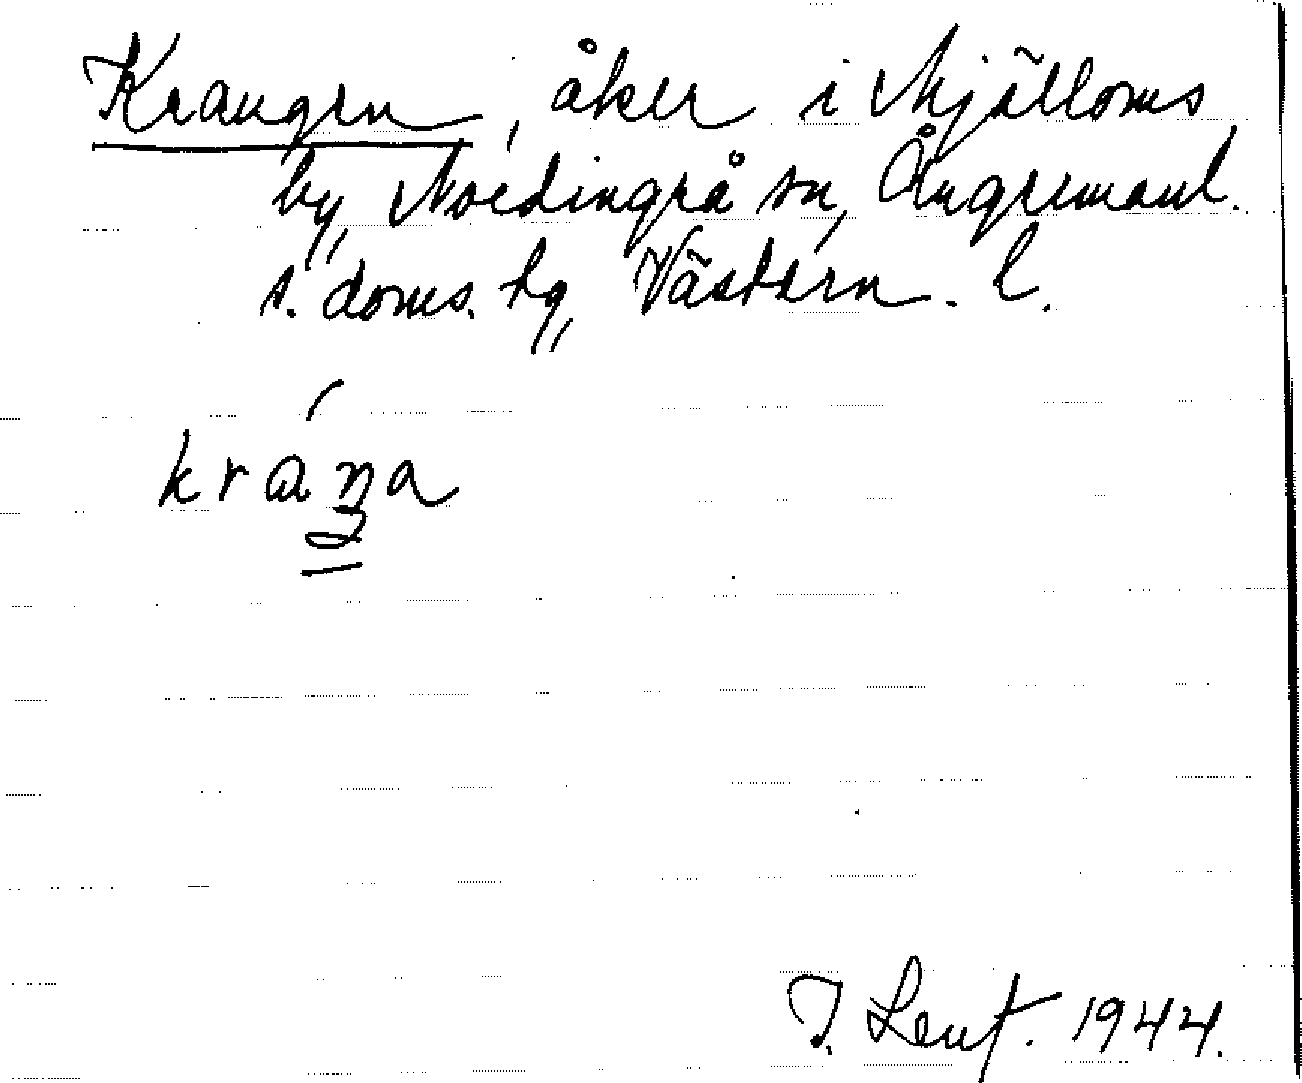 Krangen, åker i Mjälloms
by, Nordingrå sn, Ångermanl.
s. doms. hg, Västern. l.
kraŋa